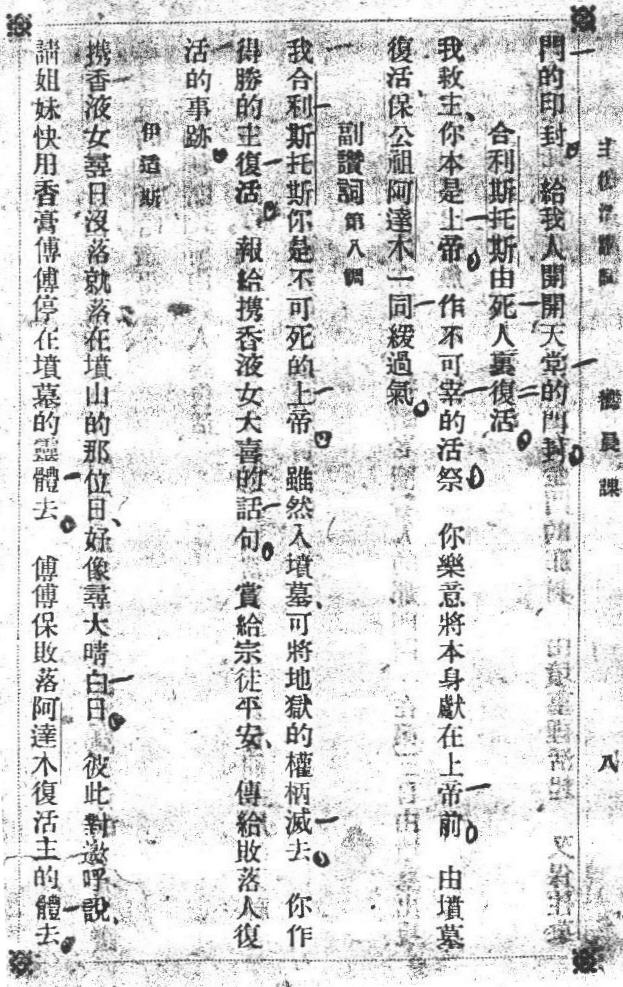 主復活讚詞 攇晨課 八
門的印封 給我人開開天堂的門封
合利斯托斯由死人裏復活
我救主、你本是上帝 作不可宰的活祭 你樂意將本身獻在上帝前 由墳墓
復活、保公祖阿達木一同緩過氣
副讚詞第八調
我合利斯托斯你是不可死的上帝 雖然入墳墓、可將地獄的權柄滅去 你作
得勝的主復活 報給攜香液女大喜的話句 賞給宗徒平安、傳給敗落人復
活的事跡
伊适斯
攜香液女尋日沒落就落在墳山的那位日、好像尋大晴白日 彼此對邀呼說、
請姐妹快用香膏傅傅停在墳墓的靈體去 傅傅保敗落阿達木復活主的體去